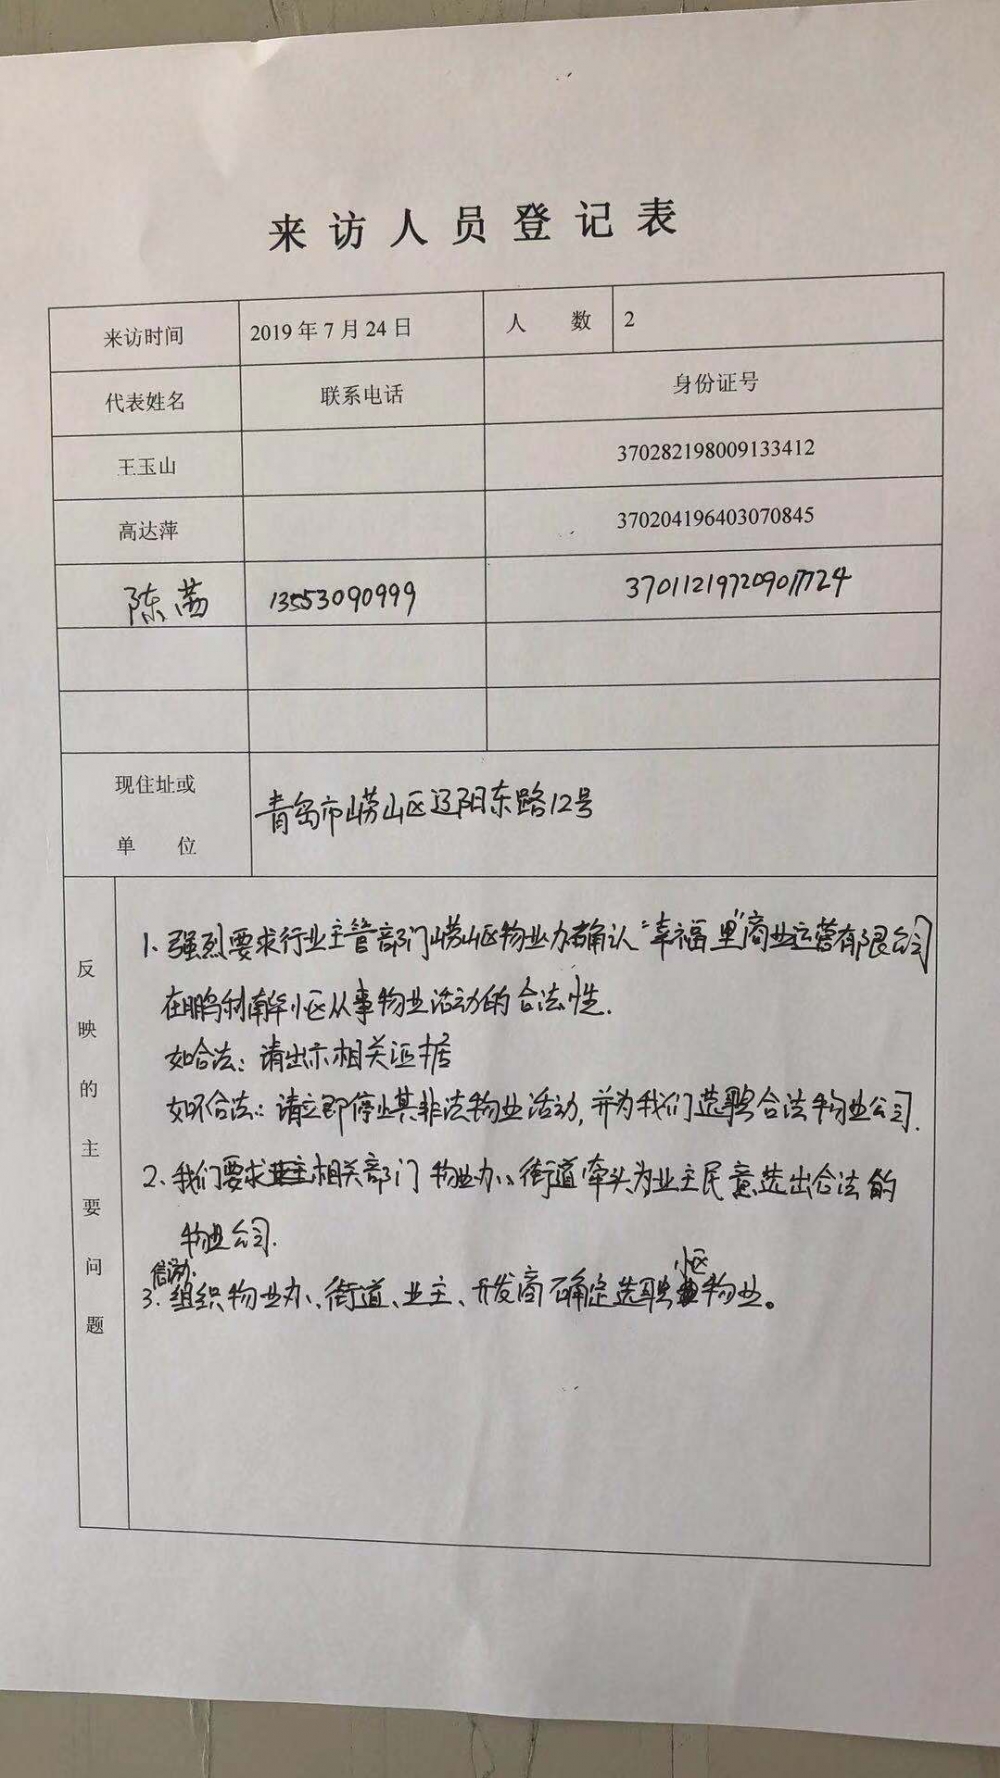 来访人员登记表
来访时间 2019年7月24日 人 数 2
代表姓名 联系电话 身份证号
王玉山 370282198009133412
高达萍 370204196403070845
陈茜 13553090999
现住址或单 位 青岛市崂山区辽阳东路12号
反映的主要问题
1、强烈要求行业主管部门崂山区物业办确认"幸福里"商业运营有限公司
在鹏利南华小区从事物业活动的合法性.
如合法：请出示相关证据
如不合法：请立即停止其非法物业活动,并为我们选聘合法物业公司.
2、我们要求相关部门物业办、街道牵头为业主民意选出合法的
物业公司.
小区
3、组织物业办、街道、业主、开发商确定选聘物业。